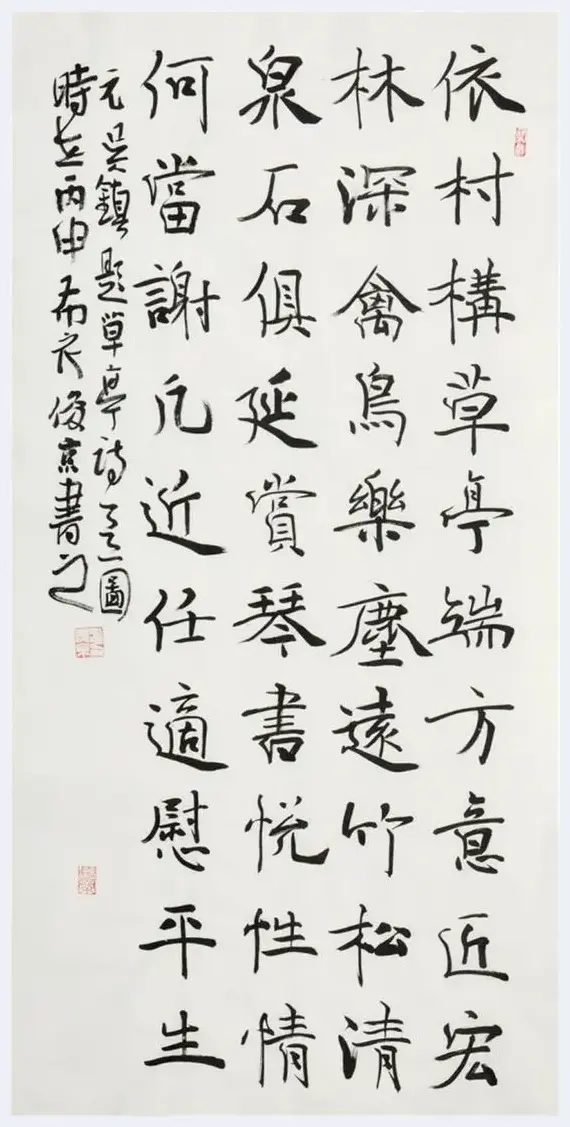 依村構草亭端方意近宏
林深禽鳥樂塵遠竹松清
泉石俱延賞琴書悅性情
何當謝凡近任適慰平生
元吳鎮題草亭詩圖
時在丙申布衣俊京書之